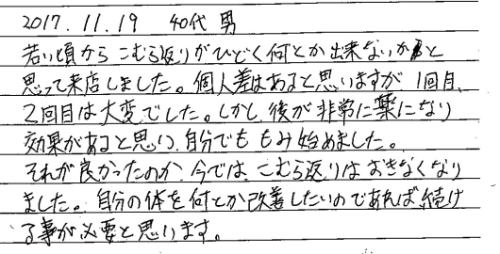 2017.11.19 40代 男
若い頃から こむら返りがひどく何とか出来ないかと
思って来店しました。個人差はあると思いますが 1回目、
2回目は大変でした。しかし 後が非常に楽になり
効果があると思い、自分でも もみ始めました。
それが良かったのか 今では、こむら返りは おきなくなり
ました。自分の体を何とか改善したいのであれば 続け
る事が必要と思います。